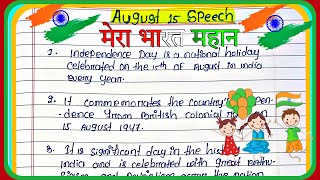 August 15 Speech
मेरा भारत महान
1. Independence Day is a national holiday
celebrated on the 15th of August in india
every year.
2. It commemorates the country's
dence from British colonial
15 August 1947.
3. It is significant day in the
India and is celebrated with great
across the nation